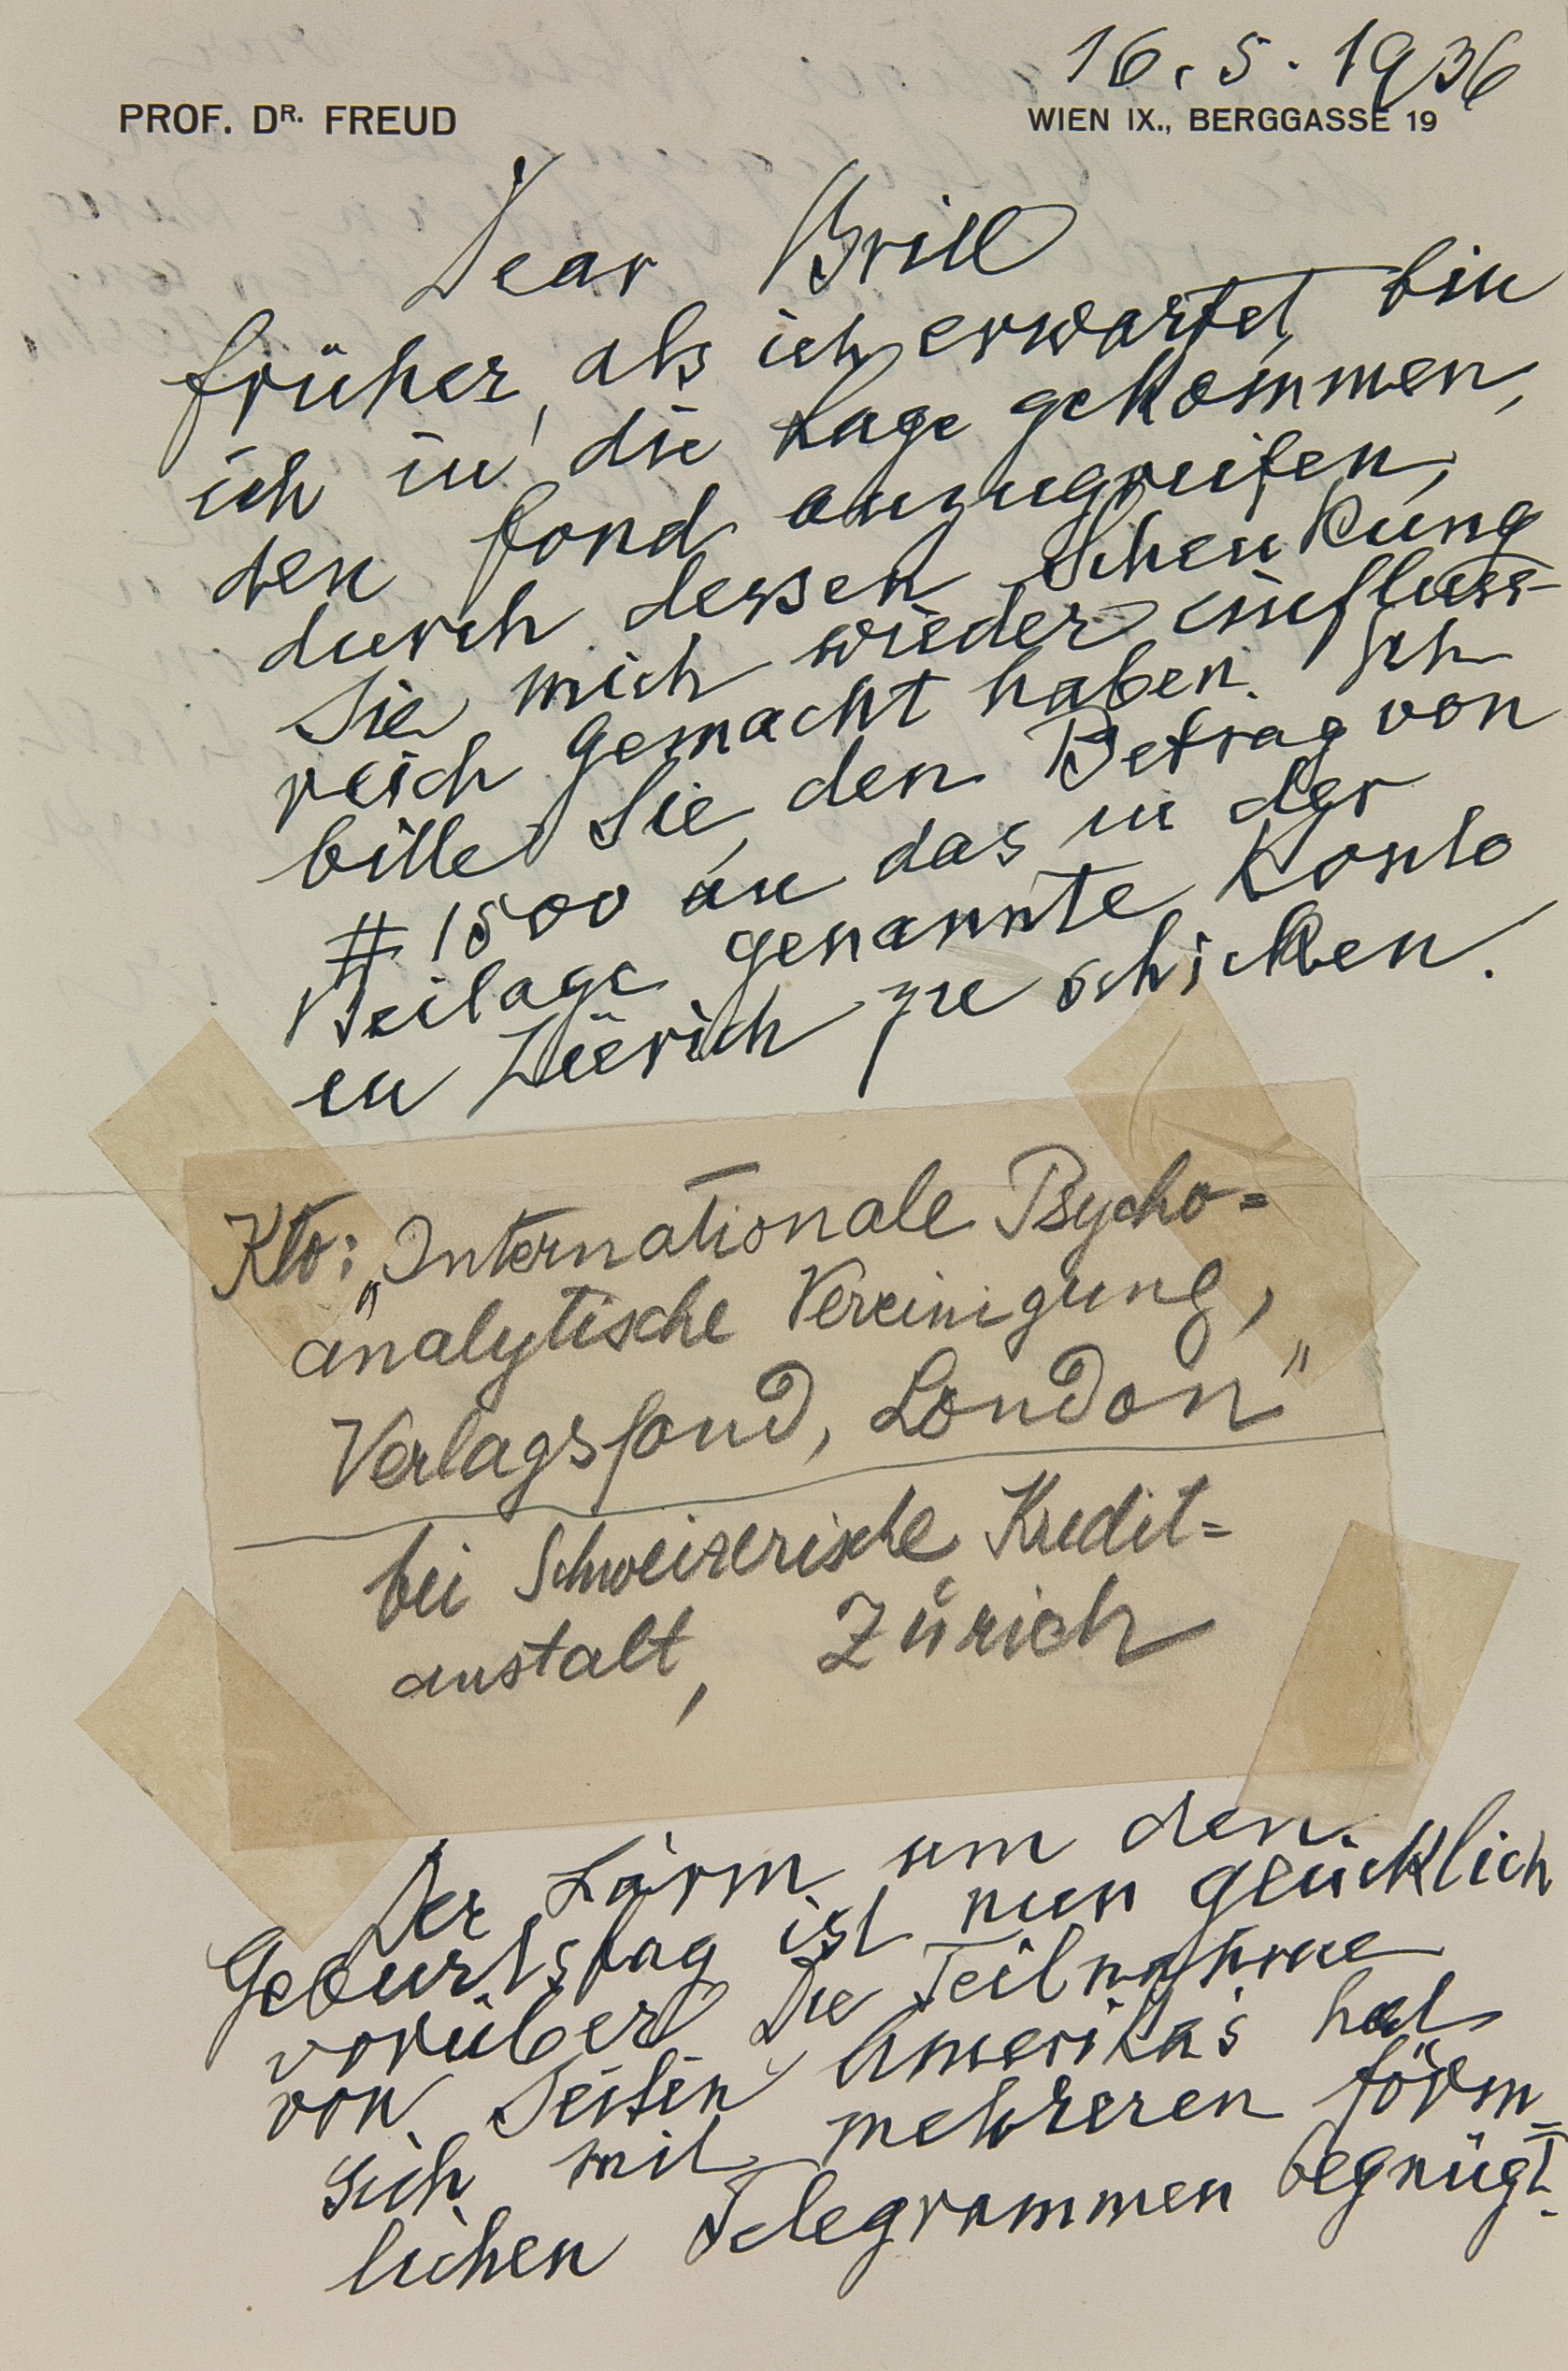 16. 5. 1936
PROF. DR. FREUD
WIEN IX., BERGGASSE 19
Dear Brill
früher, als ich erwartet, bin
ich in die Lage gekommen,
den Fond anzugreifen,
durch dessen Schenkung
Sie mich wieder einfluss-
reich gemacht haben. Ich
bitte Sie, den Betrag von
# 1500 an das in der
Beilage genannte Konto
in Zürich zu schicken.
Kto: „Internationale Psycho=
analytische Vereinigung,
Verlagsfond, London"
bei Schweizerische Kredit=
anstalt, Zürich
Der Lärm um den
Geburtstag ist nun glücklich
vorüber. Die Teilnahme
von Seiten Amerikas hat
sich mit mehreren förm=
lichen Telegrammen begnügt.